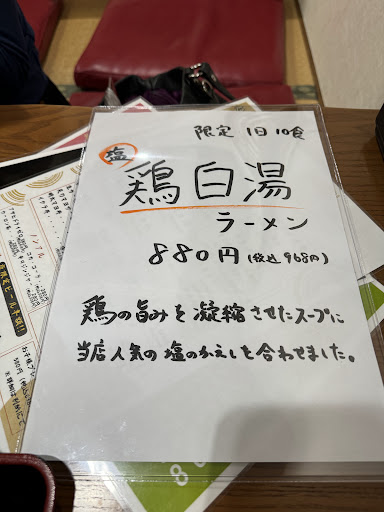 限定 1日10食
塩
鶏白湯
ラーメン
880円(税込968円)
鶏の旨みを凝縮させたスープに
当店人気の塩のかえしを合わせました。
ノンアル